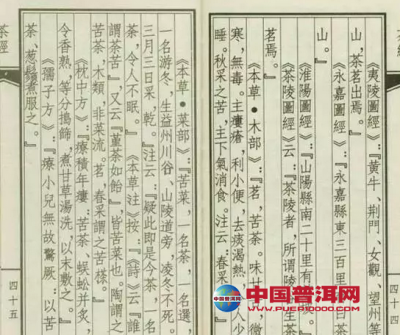 《夷陵圖經》:『黄牛、荆門、女觀、望州等
山,茶茗出焉。』
《永嘉圖經》:『永嘉縣東三百里
山。
《淮陽圖經》:『山陽縣南二十里有
《茶陵圖經》云:『茶陵者,所謂陵 生茶
茗焉。』
《本草•木部》:『茗,苦茶。味甘 微
寒,無毒。主瘻瘡,利小便,去痰渴熱 人少
睡。秋采之苦,主下氣消食。注云:春采
《本草•菜部》:『苦菜,一名荼,一名選,
一名游冬,生益州川谷、山陵道旁,凌冬不死。
三月三日采,乾。』注云:『疑此即是今茶,一名
荼,令人不眠。』《本草注》按:『《詩》云『誰
謂荼苦』,又云『堇荼如飴』,皆苦菜也。陶謂之
苦茶,木類,非菜流。茗,春采謂之苦搽。』
《枕中方》:『療積年瘻:苦茶、蜈蚣并炙,
令香熟,等分,搗篩,煮甘草湯洗,以末敷之。』
《孺子方》:『療小兒無故驚厥:以苦
茶、葱鬚煮服之。』
茶經
四十五
中国普洱网